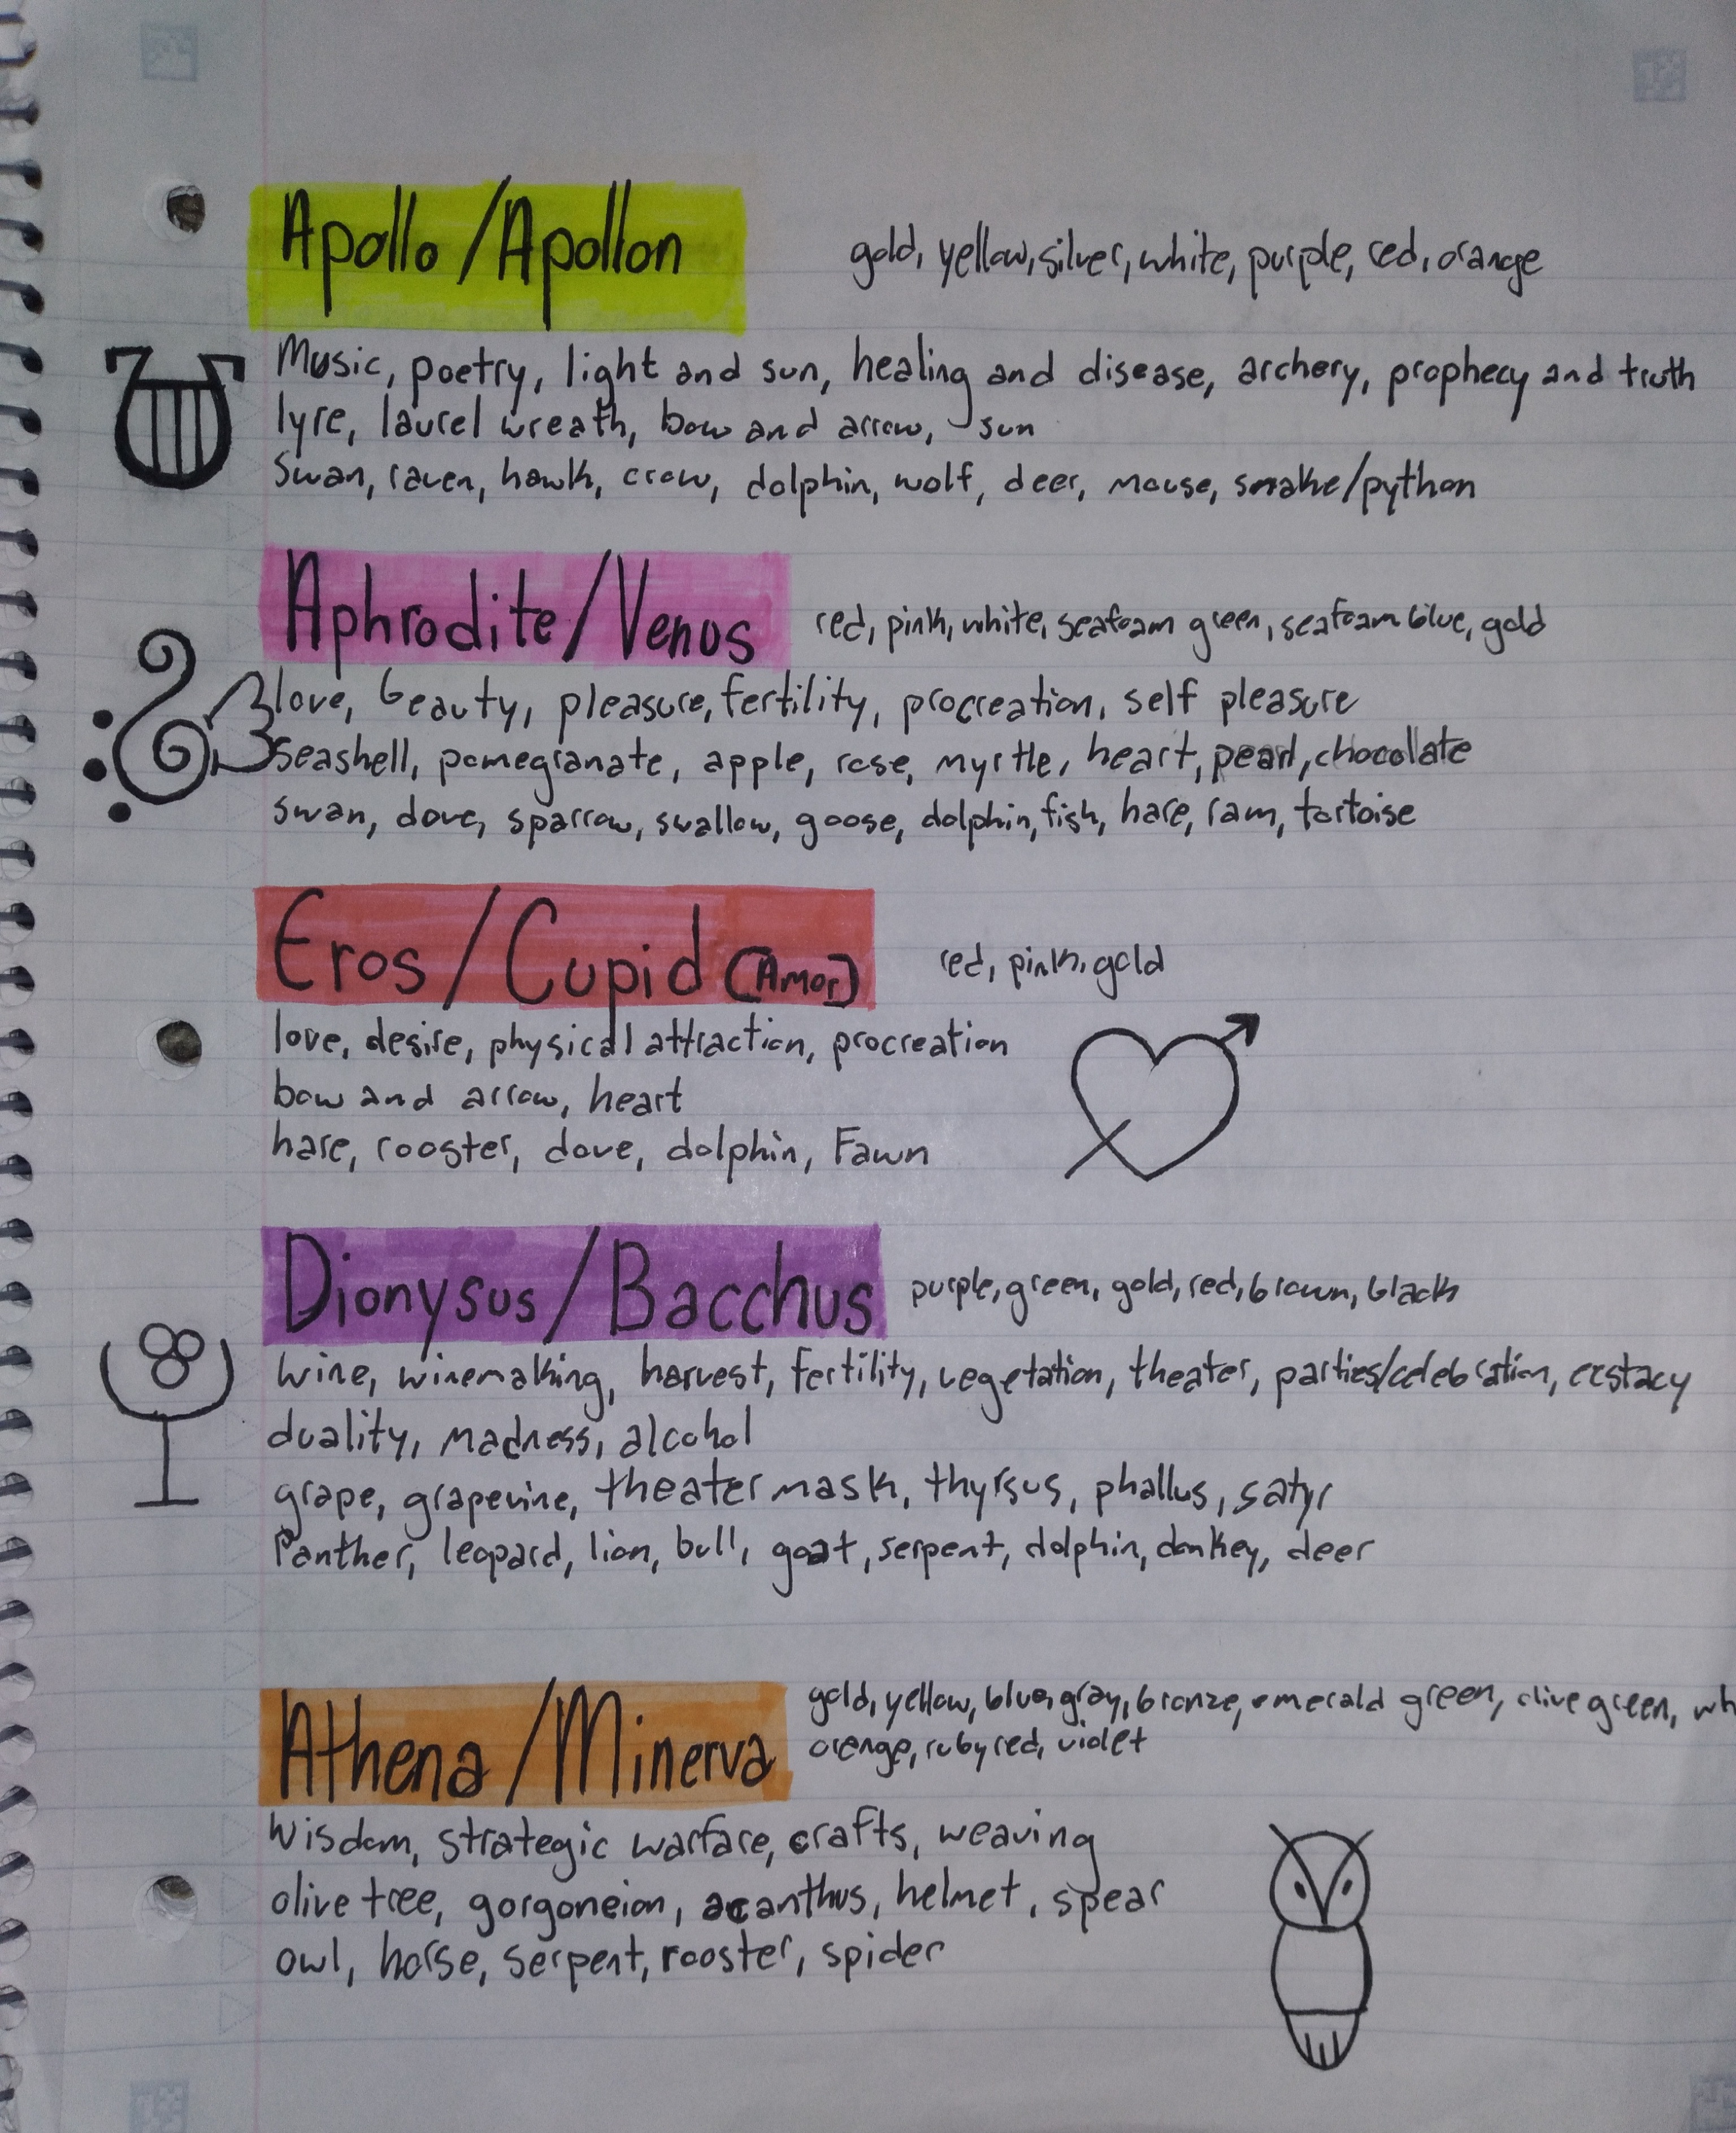 Apollo/Apollon gold, yellow, silver, white, purple, red, orange
Music, poetry, light and sun, healing and disease, archery, prophecy and truth
lyre, laurel wreath, bow and arrow, sun
Swan, raven, hawk, crow, dolphin, wolf, deer, mouse, snake/python
Aphrodite/Venus red, pink, white, seafoam green, seafoam blue, gold
love, beauty, pleasure, fertility, procreation, self pleasure
Seashell, pomegranate, apple, rose, myrtle, heart, pearl, chocolate
swan, dove, sparrow, swallow, goose, dolphin, fish, hare, ram, tortoise
Eros/Cupid (Amor) red, pink, gold
love, desire, physical attraction, procreation
bow and arrow, heart
hare, rooster, dove, dolphin, Fawn
Dionysus/Bacchus purple, green, gold, red, brown, black
Wine, winemaking, harvest, fertility, vegetation, theater, parties/celebration, ecstacy
duality, madness, alcohol
grape, grapevine, theater mask, thyrsus, phallus, satyr
Panther, leopard, lion, bull, goat, serpent, dolphin, donkey, deer
Athena/Minerva gold, yellow, blue, gray, bronze, emerald green, olive green, wh
orenge, ruby red, violet
Wisdom, strategic warfare, crafts, weaving
olive tree, gorgoneion, acanthus, helmet, spear
owl, horse, serpent, rooster, spider